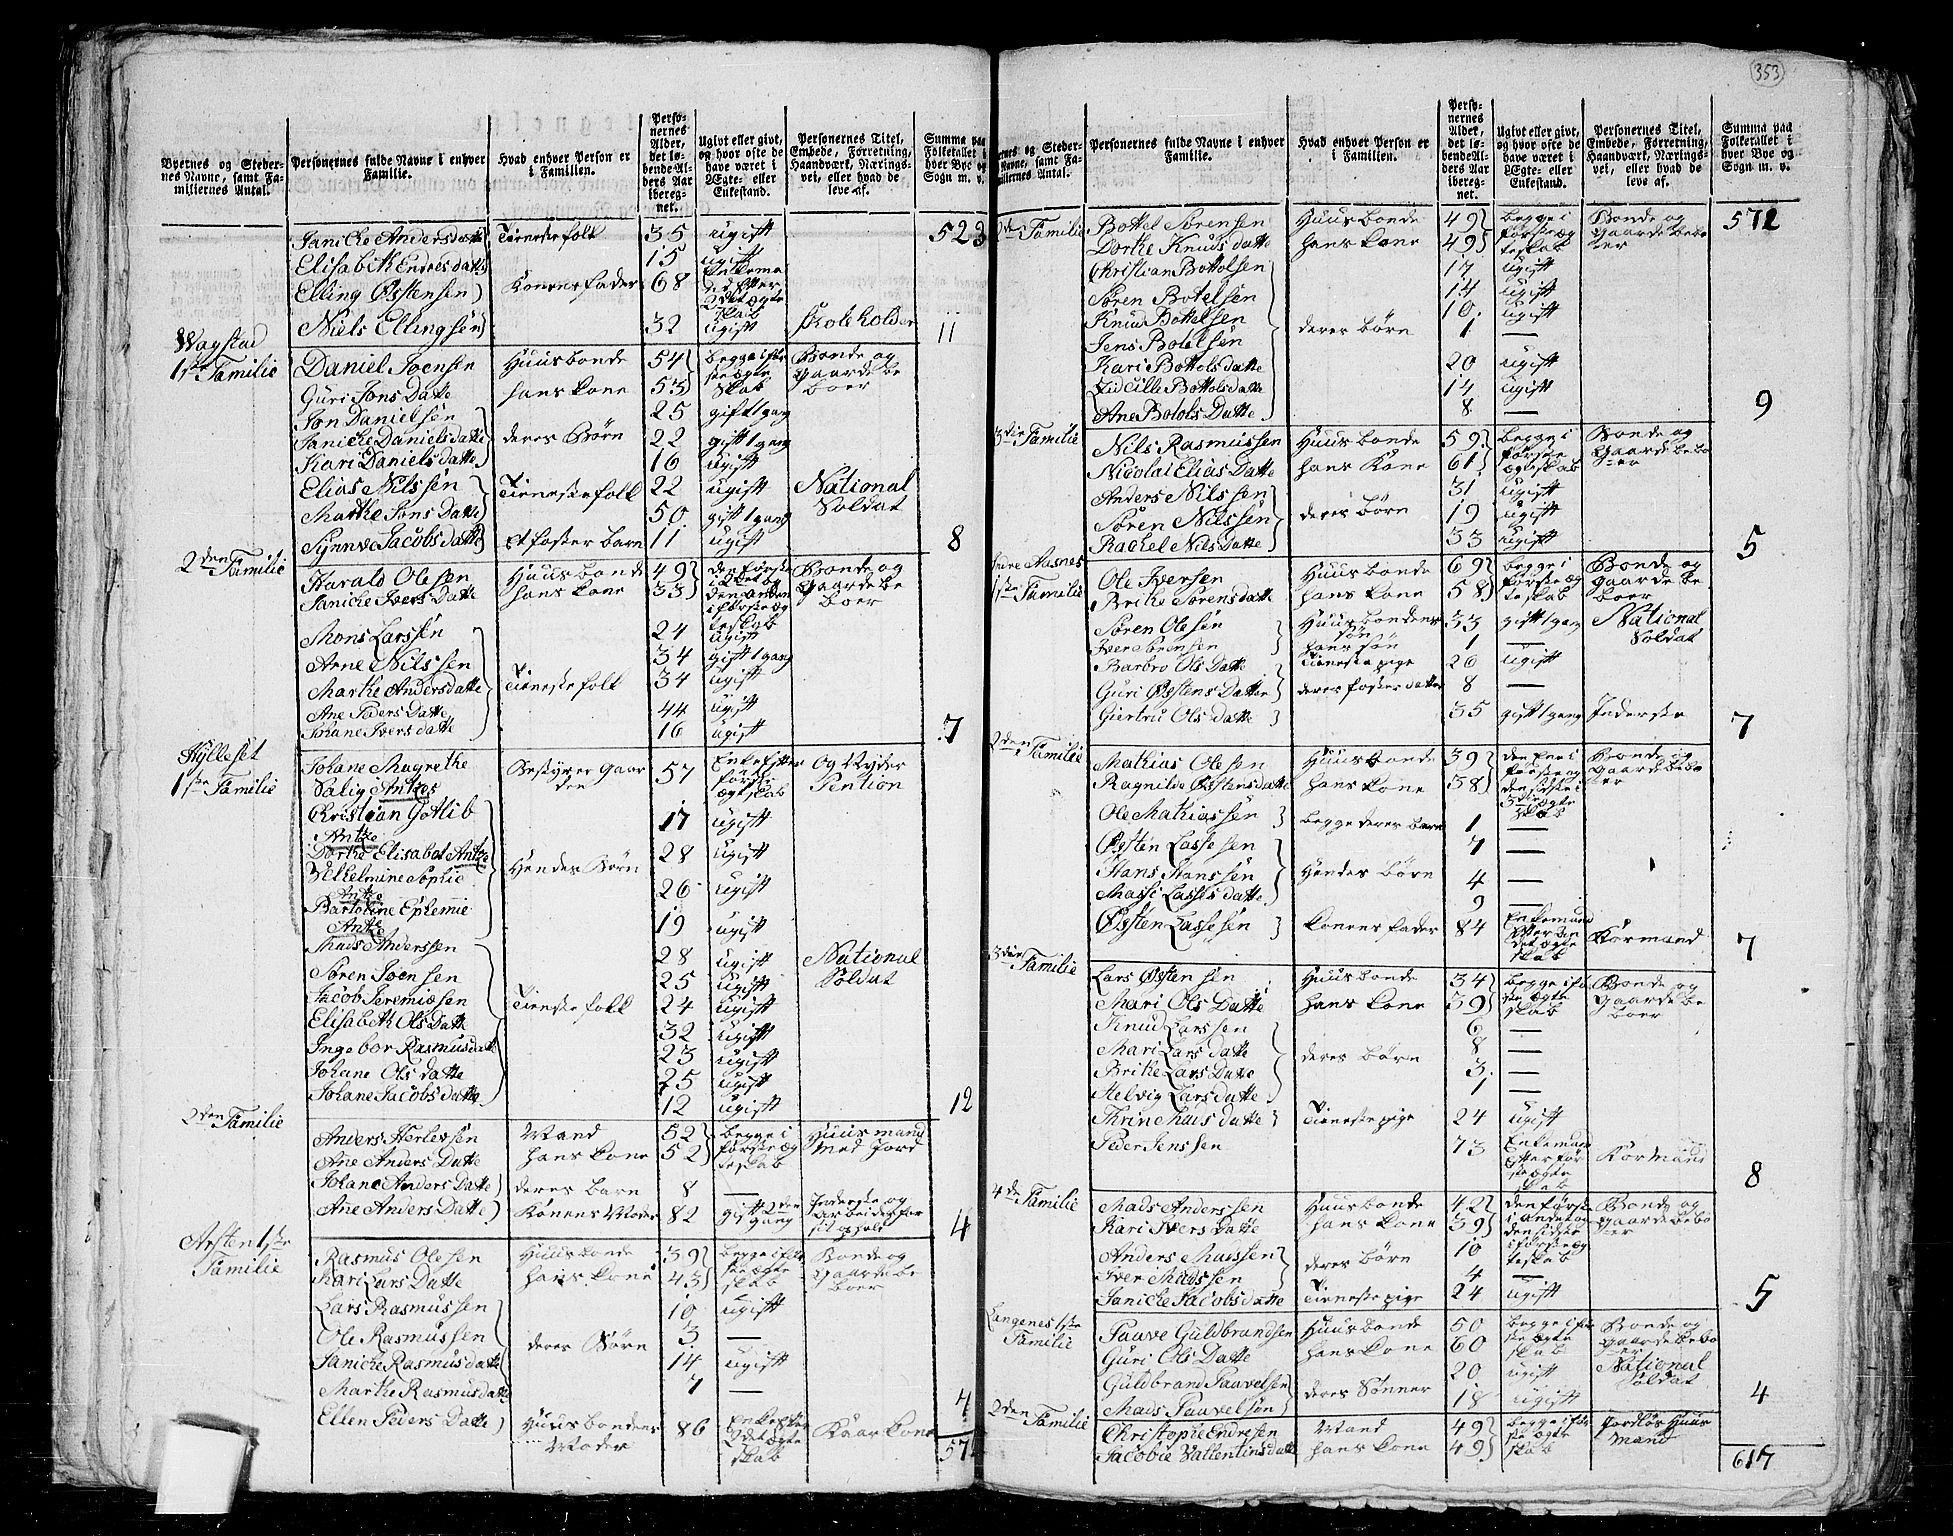 Byernes og Stedernes Navne, samt Familiernes Antal. | Personernes fulde Navne i enhver Familie. | Hvad enhver Person er i Familien. | Personernes Alder, det løbende Alders Aar iberegnet. | Ugivt eller givt, og hvor ofte de have været i Ægte- eller Enkestand. | Personernes Titel, Embede, Forretning, Haandværk, Næringsvei, eller hvad de leve af. | Summa paa Folketallet i hver Bye og Sogn m. v.
Janicke Andersdatte | Tieneste folk | 35 | ugift | 523
Elisabeth Endresdatte | 15 | ugift
Elling Østensen | Konens fader | 68 | Enkemand efter 2det ægteskab
Niels Ellingsen | 32 | ugift | Skoleholder | 11
Wagstad
1ste Familie | Daniel Joensen | Huusbonde | 54 | begge i første ægteskab | Bonde og Gaardebeboer
Guri Jons Datte | hans kone | 53
Jon Danielsen | deres Børn | 25 | gift 1 gang
Janicke Danielsdatte | 22 | gift 1 gang
Kari Danielsdatte | 16 | ugift
Elias Nilssen | Tieneste folk | 22 | ugift | National Soldat
Marthe Jons Datte | 50 | gift 1 gang
Synnve Jacobs datte | et foster barn | 11 | ugift | 8
2den Familie | Harald Olesen | Huusbonde | 49 | den første i 2det og den anden i første ægteskab | Bonde og Gaardebeboer
Janicke Ivers Datte | hans kone | 33
Mons Larssen | 24 | ugift
Arne Nilssen | 34 | gift 1 gang
Marthe Andersdatte | Tieneste folk | 34 | ugift
Ane Peders Datte | 44 | ugift
Johane Ivers datte | 16 | ugift | 7
Hylleset
1ste Familie | Johane Magrethe Salig Antzes | Bestyrer Gaarden | 57 | Enke efter første ægteskab | Og Nyder Pention
Christian Gotlib Antze | 17 | ugift
Dorthe Elisabet Antze | Hendes Børn | 28 | ugift
Vilhelmine Sophie Antze | 26 | ugift
Bartoline Ephemie Antze | 19 | ugift
Mads Anderssen | 28 | ugift | National Soldat
Søren Joensen | 25 | ugift
Jacob Jeremissen | Tieneste folk | 24 | ugift
Elisabeth Ols Datte | 32 | ugift
Ingebor Rasmusdatte | 23 | ugift
Johane Ols datte | 25 | ugift
Johane Jacobs datte | 12 | ugift | 12
2den Familie | Anders Herlevsen | Mand | 52 | begge i første ægteskab | Huusmand Med Jord
Ane Anders Datte | hans kone | 52
Johane Anders Datte | deres barn | 8 | —
Ane Anders Datte | Konens Moder | 82 | gift 2den gang | Inderste og arbeider for sit ophold | 4
Arsten 1ste Familie | Rasmus Olesen | Huusbonde | 39 | begge i første ægteskab | Bonde og Gaardebeboer
Kari Lars Datte | hans kone | 43
Lars Rasmussen | 10 | ugift
Ole Rasmussen | deres Børn | 3 | —
Janicke Rasmusdatte | 14 | ugift
Marthe Rasmusdatte | 7 | —
Ellen Peders Datte | Huusbondens Moder | 86 | Enke efter 2det ægteskab | Kaarkone | 4
57
353
Personernes fulde Navne i enhver Familie. | Hvad enhver Person er i Familien. | Personernes Alder, det løbende Alders Aar iberegnet. | Ugivt eller givt, og hvor ofte de have været i Ægte- eller Enkestand. | Personernes Titel, Embede, Forretning, Haandværk, Næringsvei, eller hvad de leve af. | Summa paa Folketallet i hver Bye og Sogn m. v.
2den Familie | Bottel Sørensen | Huusbonde | 49 | begge i første ægteskab | Bonde og Gaardebeboer | 572
Dorthe Knuds datte | hans kone | 49
Christian Bottolsen | 17 | ugift
Søren Botelsen | 14 | ugift
Knud Bottelsen | deres børn | 10 | ugift
Jens Botelsen | 1 | —
Kari Bottols datte | 20 | ugift
Zidcille Bottolsdatte | 14 | ugift
Ane Botols Datte | 8 | — | 9
3die Familie | Nils Rasmussen | Huusbonde | 59 | begge i første ægteskab | Bonde og Gaardebeboer
Nicolai Elias Datte | hans Kone | 61
Anders Nilssen | deres børn | 31 | ugift
Søren Nilssen | 19 | ugift
Rachel Nils Datte | 33 | ugift | 5
Indre Aasnes
1ste Familie | Ole Iversen | Huusbonde | 69 | begge i første ægteskab | Bonde og Gaardebeboer
Brithe Sørensdatte | hans kone | 58
Søren Olesen | Huusbondens søn | 33 | gift 1 gang | National Soldat
Iver Sørensen | hans søn | 1 | —
Barbro Ols Datte | Tieneste pige | 26 | ugift
Guri Østens Datte | deres foster datter | 8 | —
Giertru Ols datte | 35 | gift 1 gang | Inderste | 7
2den Familie | Mathias Olesen | Huusbonde | 39 | den Ene i første og den sidste i 3die ægteskab | Bonde og Gaardebeboer
Ragnilde Østensdatte | hans kone | 38
Ole Mathiassen | begge deres barn | 1 | —
Østen Lassesen | 7 | —
Hans Hanssen | Hendes børn | 4 | —
Massi Lassesdatte | 9 | —
Østen Lassesen | konens fader | 84 | Enkemand efter 2den det ægteskab | Kørmand | 7
3die Familie | Lars Østensen | Huusbonde | 34 | begge i første ægteskab | Bonde og Gaardebeboer
Mari Ols Datte | hans kone | 39
Knud Larssen | 6 | —
Mari Lars datte | deres børn | 8 | —
Brithe Lars Datte | 3 | —
Helvig Lars datte | 1 | —
Thrine Mads datte | Tieneste pige | 24 | ugift
Peder Jenssen | 73 | Enkemand efter første ægteskab | Kørmand | 8
4de Familie | Mads Anderssen | Huusbonde | 42 | den første i andet og den sidste i første ægteskab | Bonde og Gaardebeboer
Kari Ivers Datte | hans kone | 39
Anders Madssen | deres børn | 10
Iver Madssen | 4 | —
Janicke Jacobs datte | Tieneste pige | 24 | ugift | 5
Langenes 1ste Familie | Paave Guldbrandsen | Huusbonde | 50 | begge i første ægteskab | Bonde og Gaardebeboer
Guri Ols Datte | hans kone | 60
Guldbrand Paavelsen | deres Sønner | 20 | ugift | National Soldat
Mads Paavelsen | 18 | ugift | 4
2den Familie | Christophe Endresen | Mand | 49 | begge i første ægteskab | Jordløs Huusmand
Jacobie Vallentinsdatte | hans kone | 49
617